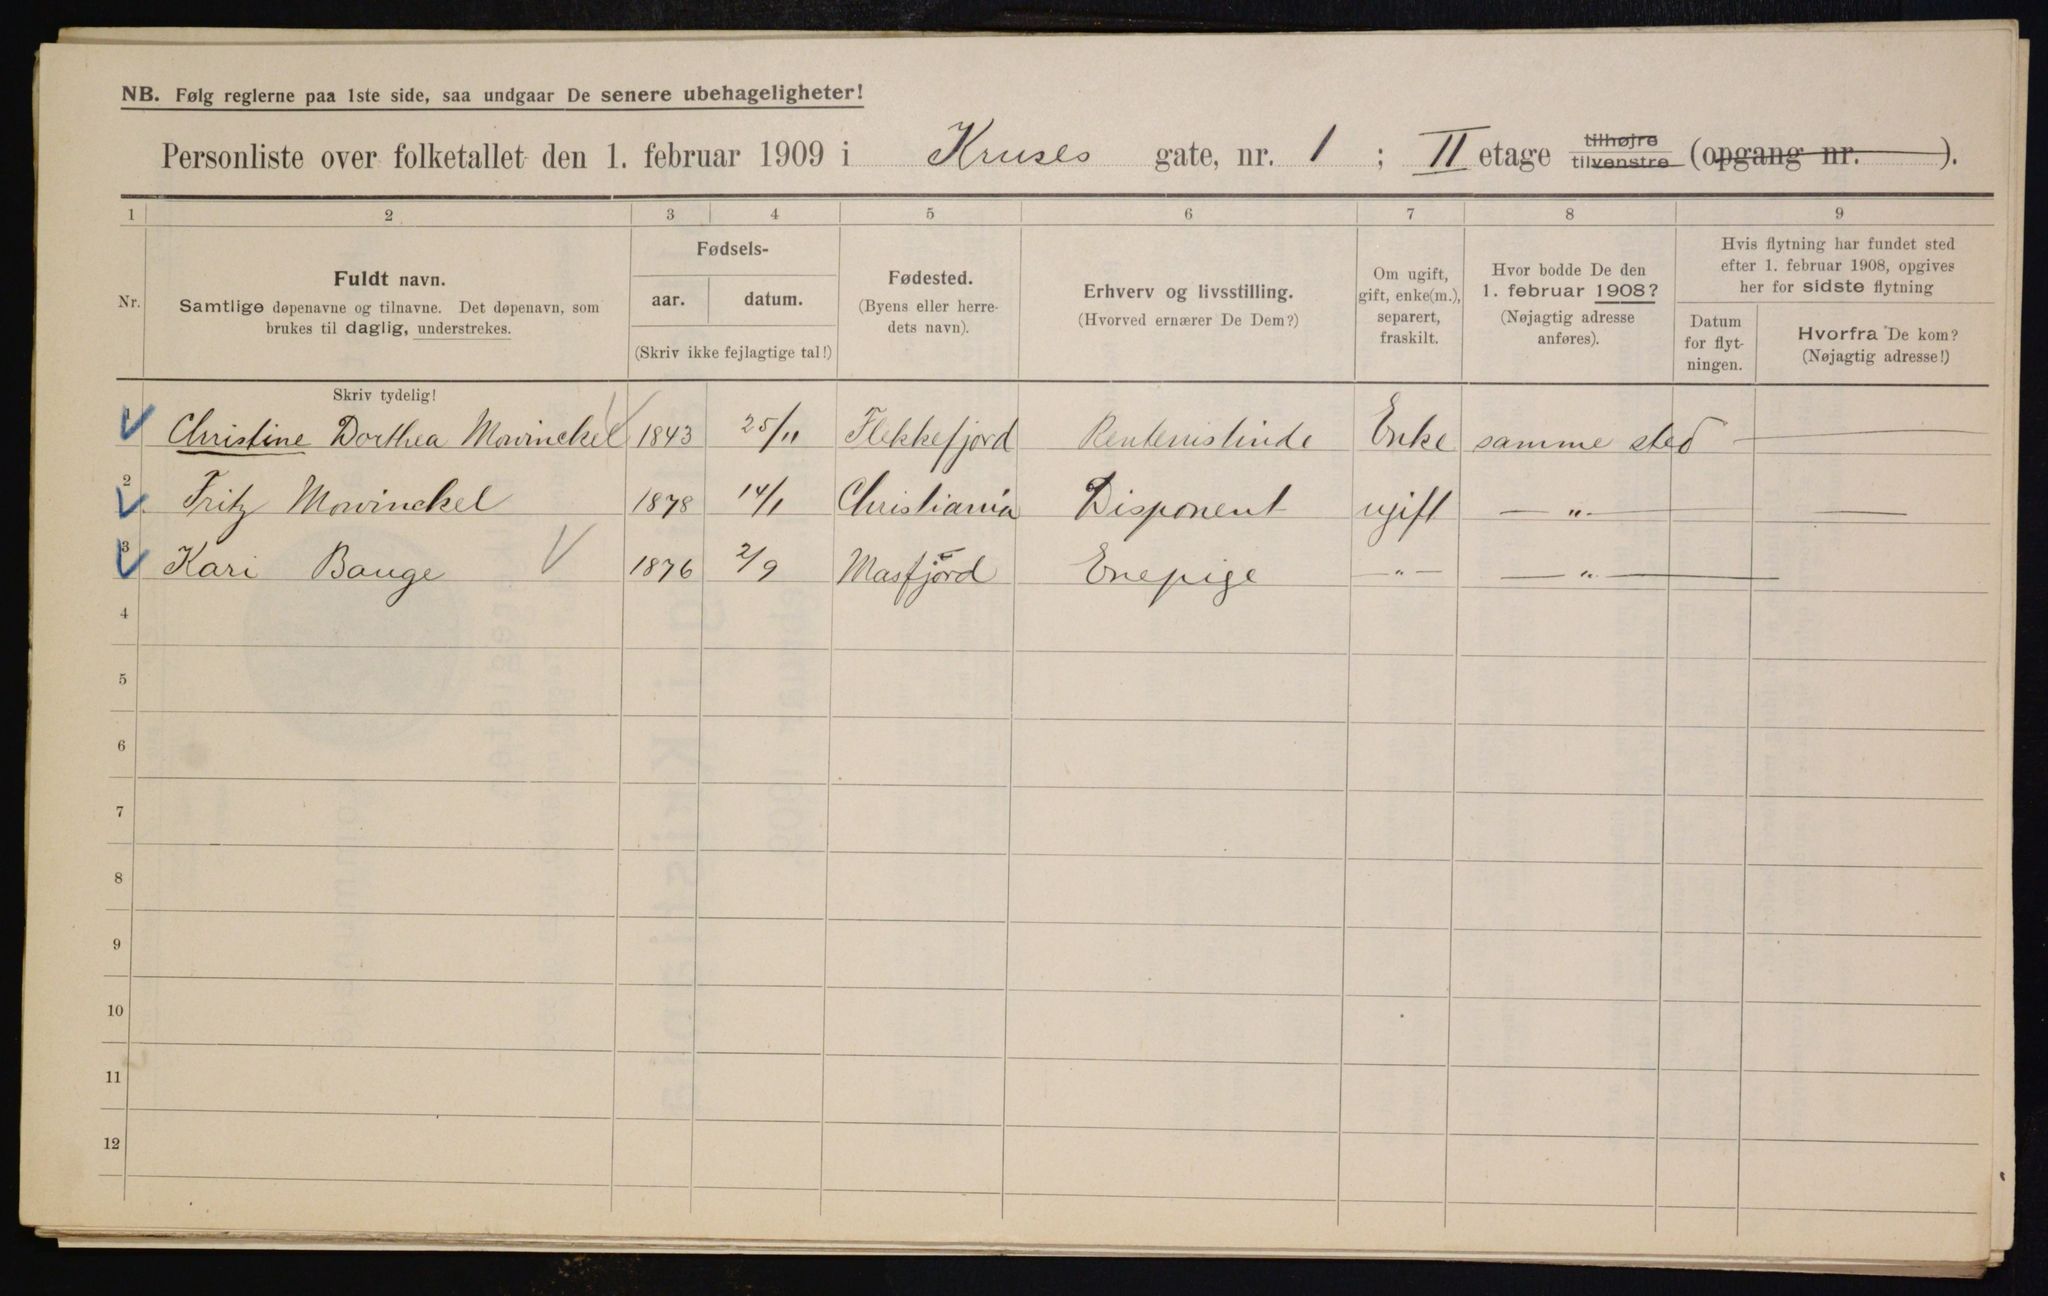 NB. Følg reglerne paa 1ste side, saa undgaar De senere ubehageligheter!
Personliste over folketallet den 1. februar 1909 i Kruses gate, nr. 1 ; II etage tilhøjre tilvenstre (opgang nr. ).
1 2 3 4 5 6 7 8 9
Nr.
Fuldt navn.
Samtlige døpenavne og tilnavne. Det døpenavn, som
brukes til daglig, understrekes.
Fødsels-
aar. datum.
(Skriv ikke fejlagtige tal!)
Fødested.
(Byens eller herre-
dets navn).
Erhverv og livsstilling.
(Hvorved ernærer De Dem?)
Om ugift,
gift, enke(m.),
separert,
fraskilt.
Hvor bodde De den
1. februar 1908?
(Nøjagtig adresse
anføres).
Hvis flytning har fundet sted
efter 1. februar 1908, opgives
her for sidste flytning
Datum
for flyt-
ningen.
Hvorfra De kom?
(Nøjagtig adresse!)
Skriv tydelig!
1 Christine Dorthea Mowinckel 1843 25/11 Flekkefjord Rentenistinde Enke samme sted —
2 Fritz Mowinckel 1878 14/1 Christiania Disponent ugift — „ — —
3 Kari Bauge 1876 2/9 Masfjord Enepige — „ — — „ —
4
5
6
7
8
9
10
11
12